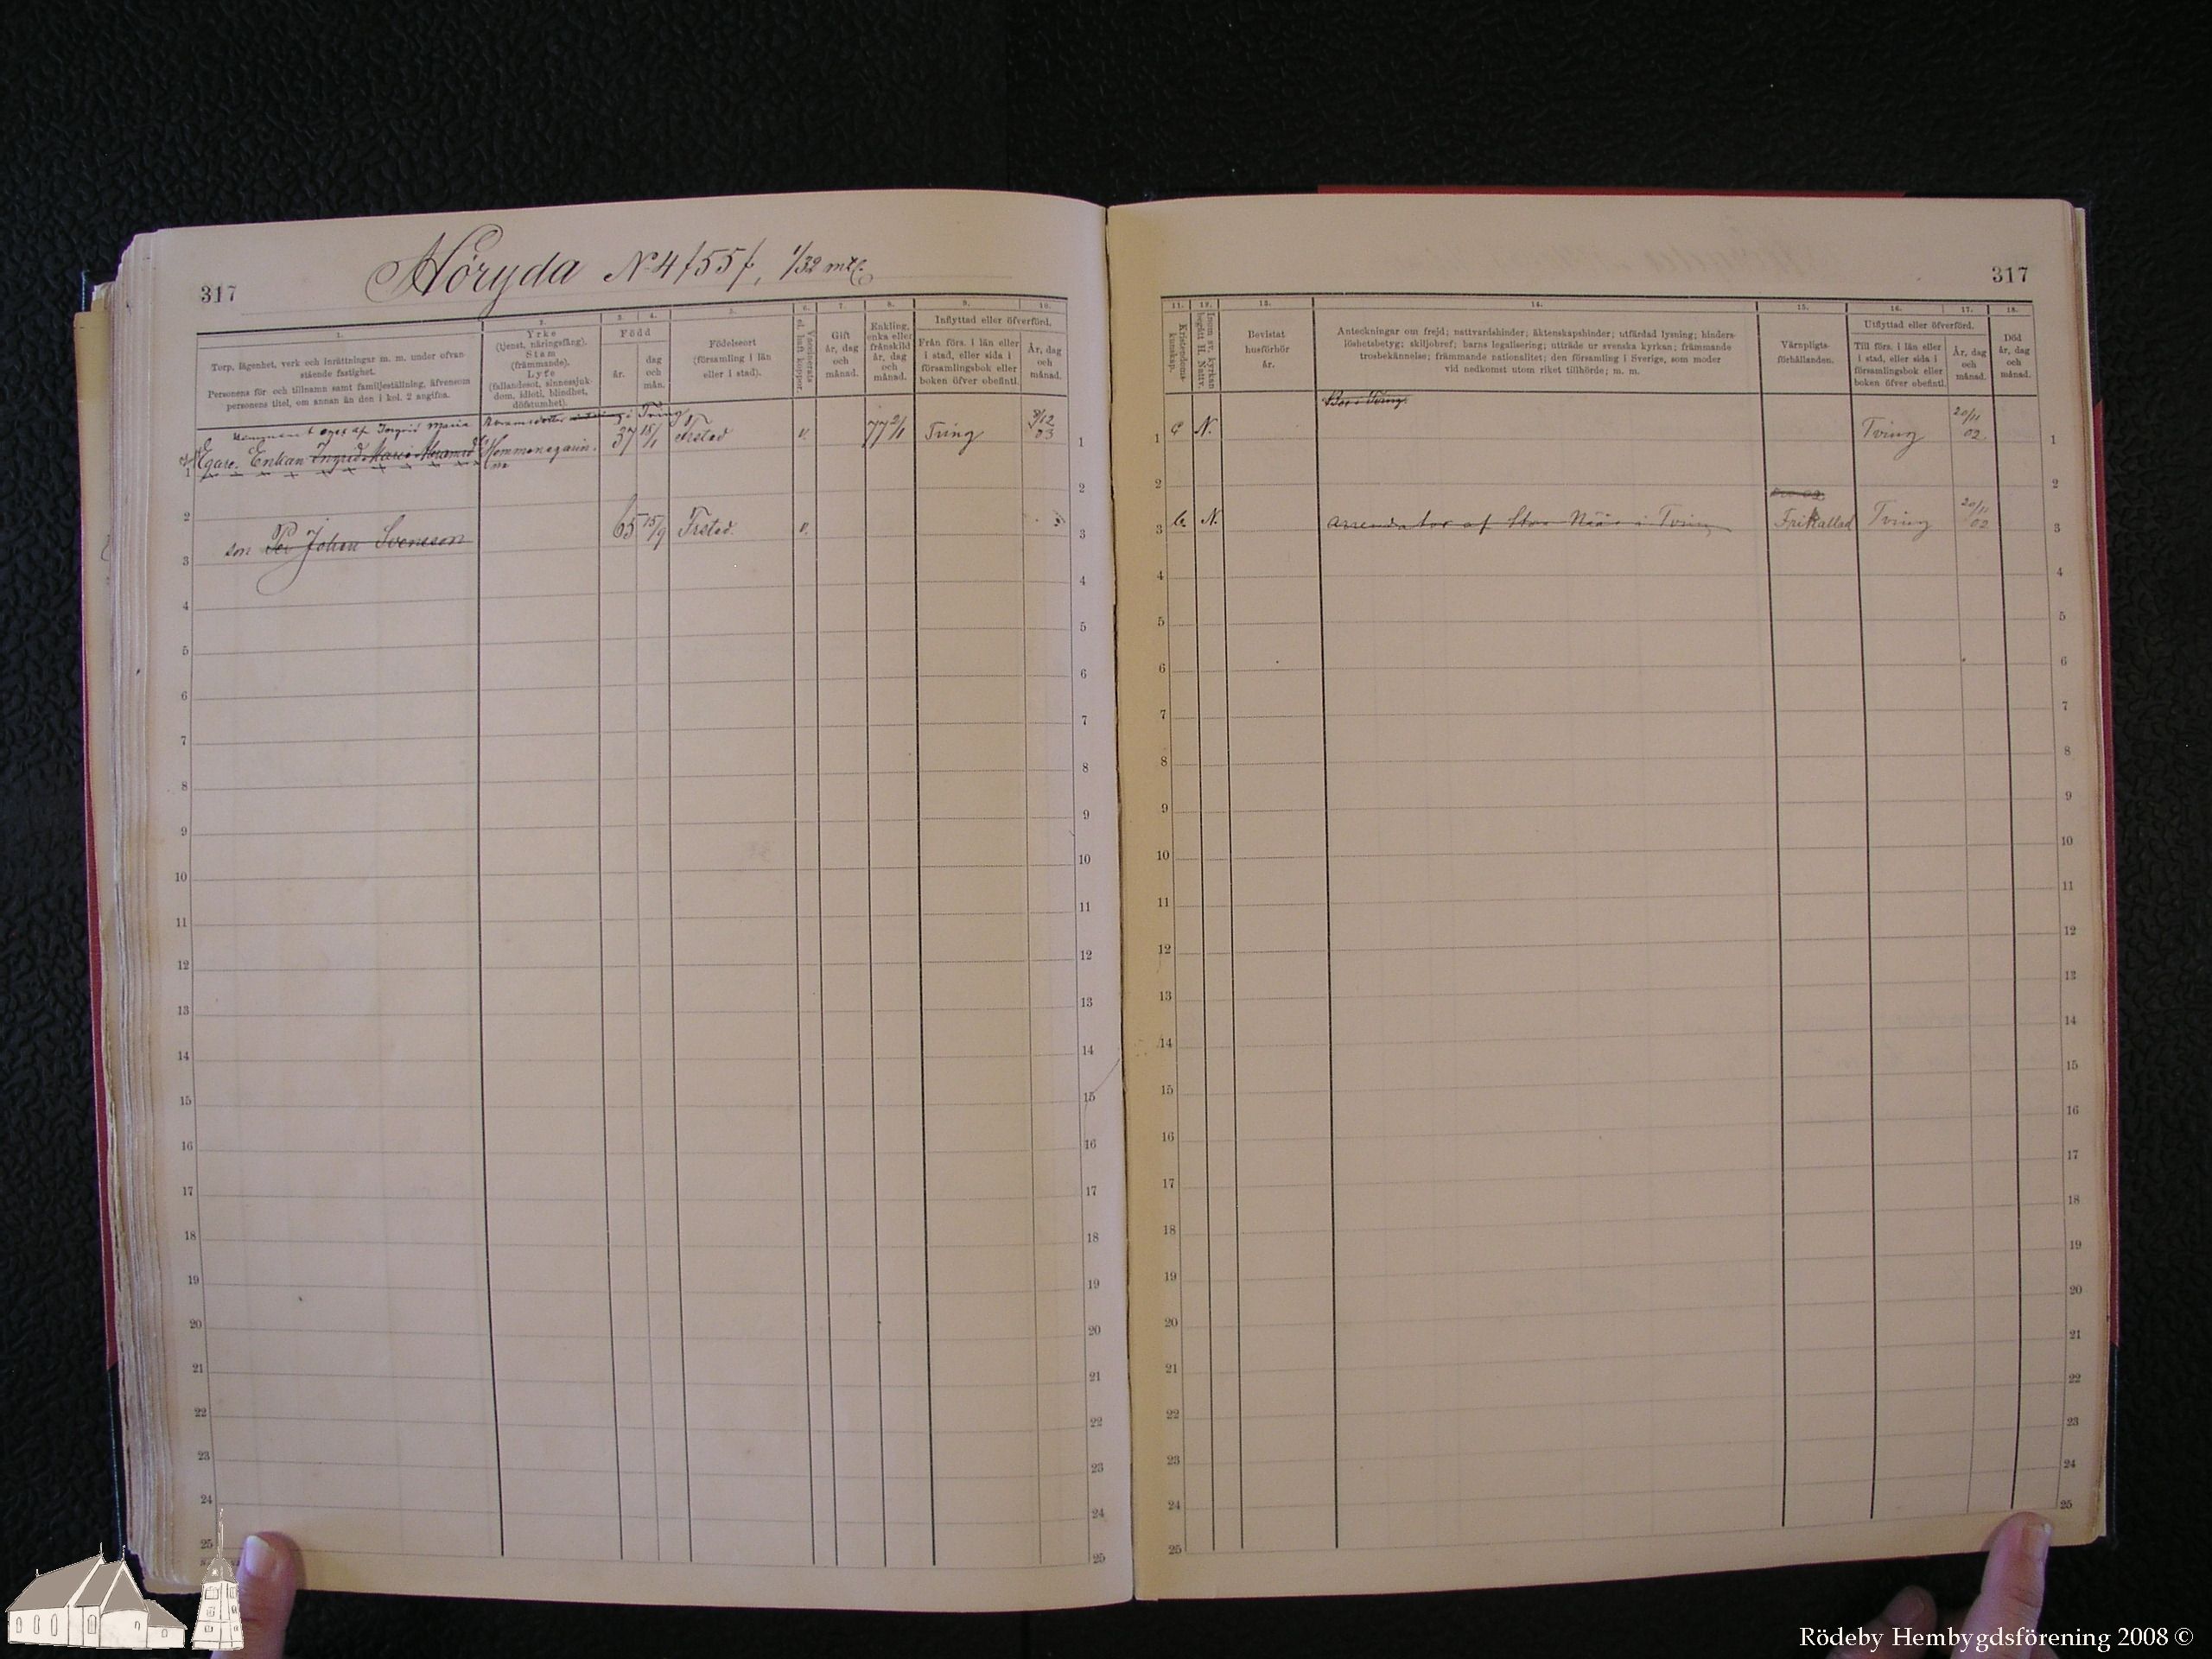 Höryda N. 4 /55/, 1/32 mtl.
317
1.
Torp, lägenhet, verk och inrättningar m. m. under ofvan-
stående fastighet.
Personens för och tillnamn samt familjeställning, äfvensom
personens titel, om annan än den i kol. 2 angifna.
2.
Yrke
(tjenst, näringsfång).
Stam
(främmande).
Lyte
(fallandesot, sinnessjuk-
dom, idioti, blindhet,
döfstumhet).
3. 4.
Född
år.
dag
och
mån.
5.
Födelseort
(församling i län
eller i stad).
6.
Vaccinerats
el. haft koppor.
7.
Gift
år, dag
och
månad.
8.
Enkling,
enka eller
frånskild
år, dag
och
månad.
9. 10.
Inflyttad eller öfverförd.
Från förs. i län eller
i stad, eller sida i
församlingsbok eller
boken öfver obefintl.
År, dag
och
månad.
Hemmanet eges af Ingrid Maria Abramsdotter i Tving
1 Egare. Enkan Ingrid Maria Abramsd. Hemmansegarin- 37 18/1 Frstad v. 77 2/1 Tving 3/12 03 1
2 2
son Per Johan Svensson 65 15/9 Frstad. v. 3
3
4 4
5 5
6 6
7 7
8 8
9 9
10 10
11 11
12 12
13 13
14 14
15 15
16 16
17 17
18 18
19 19
20 20
21 21
22 22
23 23
24 24
25 25
317
11.
Kristendoms-
kunskap.
12.
Inom sv. kyrkan
begått H. Nattv.
13.
Bevistat
husförhör
år.
14.
Anteckningar om frejd; nattvardshinder; äktenskapshinder; utfärdad lysning; hinders-
löshetsbetyg; skiljobref; barns legalisering; utträde ur svenska kyrkan; främmande
trosbekännelse; främmande nationalitet; den församling i Sverige, som moder
vid nedkomst utom riket tillhörde; m. m.
15.
Värnpligts-
förhållanden.
16. 17.
Utflyttad eller öfverförd.
Till förs. i län eller
i stad, eller sida i
församlingsbok eller
boken öfver obefintl.
År, dag
och
månad.
18.
Död
år, dag
och
månad.
Bor i Tving.
1 G N. Tving 20/11 02. 1
2 2
3 G. N. arrendator af Stora Näs i Tving Frikallad Tving 20/11 02 3
4 4
5 5
6 6
7 7
8 8
9 9
10 10
11 11
12 12
13 13
14 14
15 15
16 16
17 17
18 18
19 19
20 20
21 21
22 22
23 23
24 24
25 25
Rödeby Hembygdsförening 2008 ©